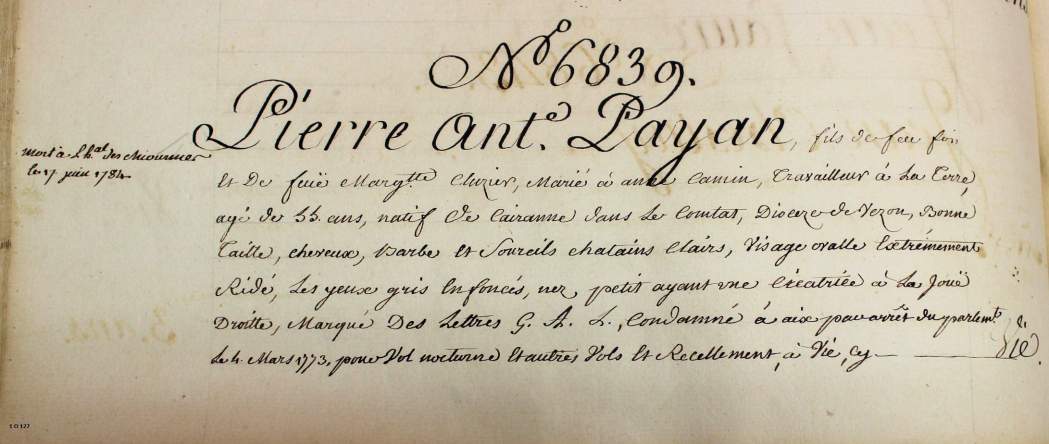 N° 6839.
Pierre Ant.e Payan, fils de feu
mort a L'h.al des chiourmes
le 17 juin 1784.
Et De feuë Marg.tte Cluzier, Marié à anne Camin, Travailleur à La Terre,
agé de 55. ans, natif de Cairanne dans Le Comtat, Dioceze de Vezon, Bonne
Taille, cheveux, Barbe et Sourcils chatains Clairs, Visage ovalle Extrémement
Ridé, Les yeux gris Enfoncés, nez petit ayant une Cicatrice à La Jouë
Droitte, Marqué Des Lettres G. A. L., Condamné à aix par arrêt du parlem.t
Le 4. Mars 1773. pour Vol nocturne Et autres Vols Et Recellement, à Vie, Cy
Vie.
1 O 127